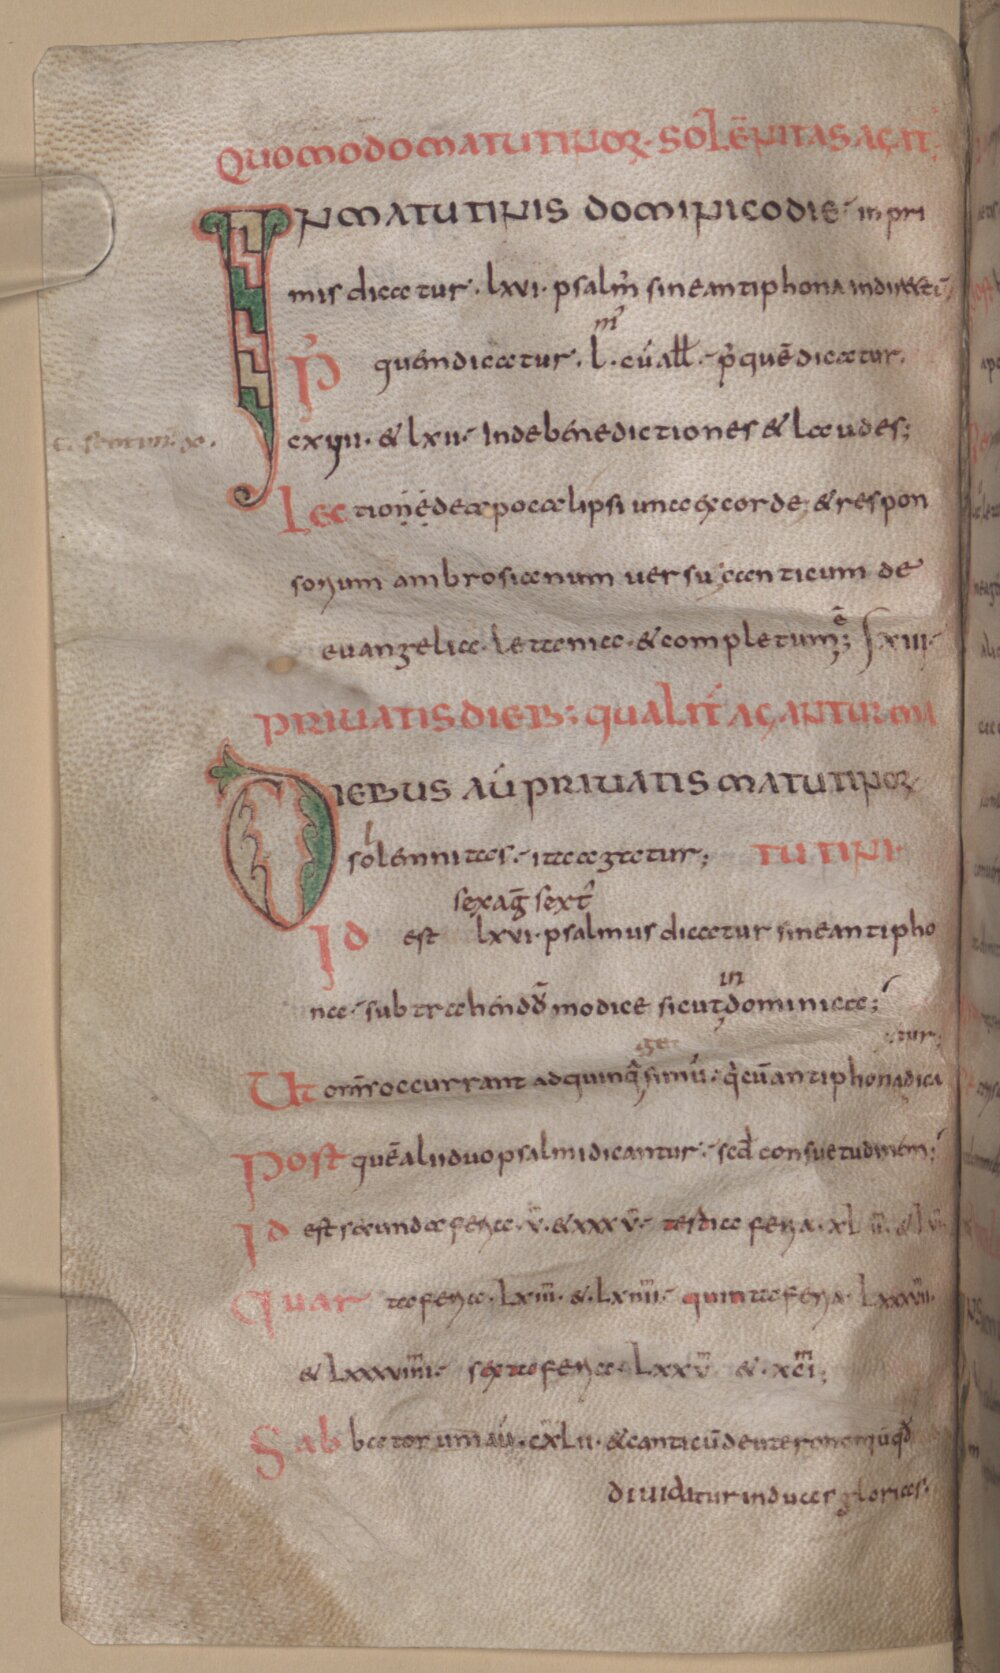 QUOMODO MATUTINOR· SOLĒNITAS AGAT̄;
IN MATUTINIS DOMINICO DIE· in pri
mis dicatur· lxvi· psalm̄ sine antiphona indirectū
P̄ quem dicatur· l·m̄ cū all̄· p̄ quē dicatur·
cxvii· & lxii· Inde benedictiones & laudes;
Lectionē de apocalipsi una ex corde· & respon
sorium ambrosianum uersu canticum de
euangelia· letania· & completum ē;
XIII·
PRIUATIS DIEB; QUALIT̄ AGANTUR MA
DIEBUS AŪ PRIUATIS MATUTINOR
solemnitas· ita agatur; TUTINI·
sexag̅ sext̄
Id est lxvi· psalmus dicatur sine antipho
na· subtrahendō modice sicut in dominica;
tur;
Ut om̄s occurrant ad quinq̄gesimū· q̄ cū antiphona dica
Post quē alii duo psalmi dicantur· scd̄ consuetudinem;
Id est secunda feria· v· & xxxv· tertia feria· xlii· & lvi
Quarta feria· lxiii· & lxiiii· quinta feria· lxxxvii·
& lxxxviiii· sexta feria· lxxv & xci;
Sabbatorum aū· cxlii· & canticū deuteronomiū qd̄
diuidatur in duas glorias·